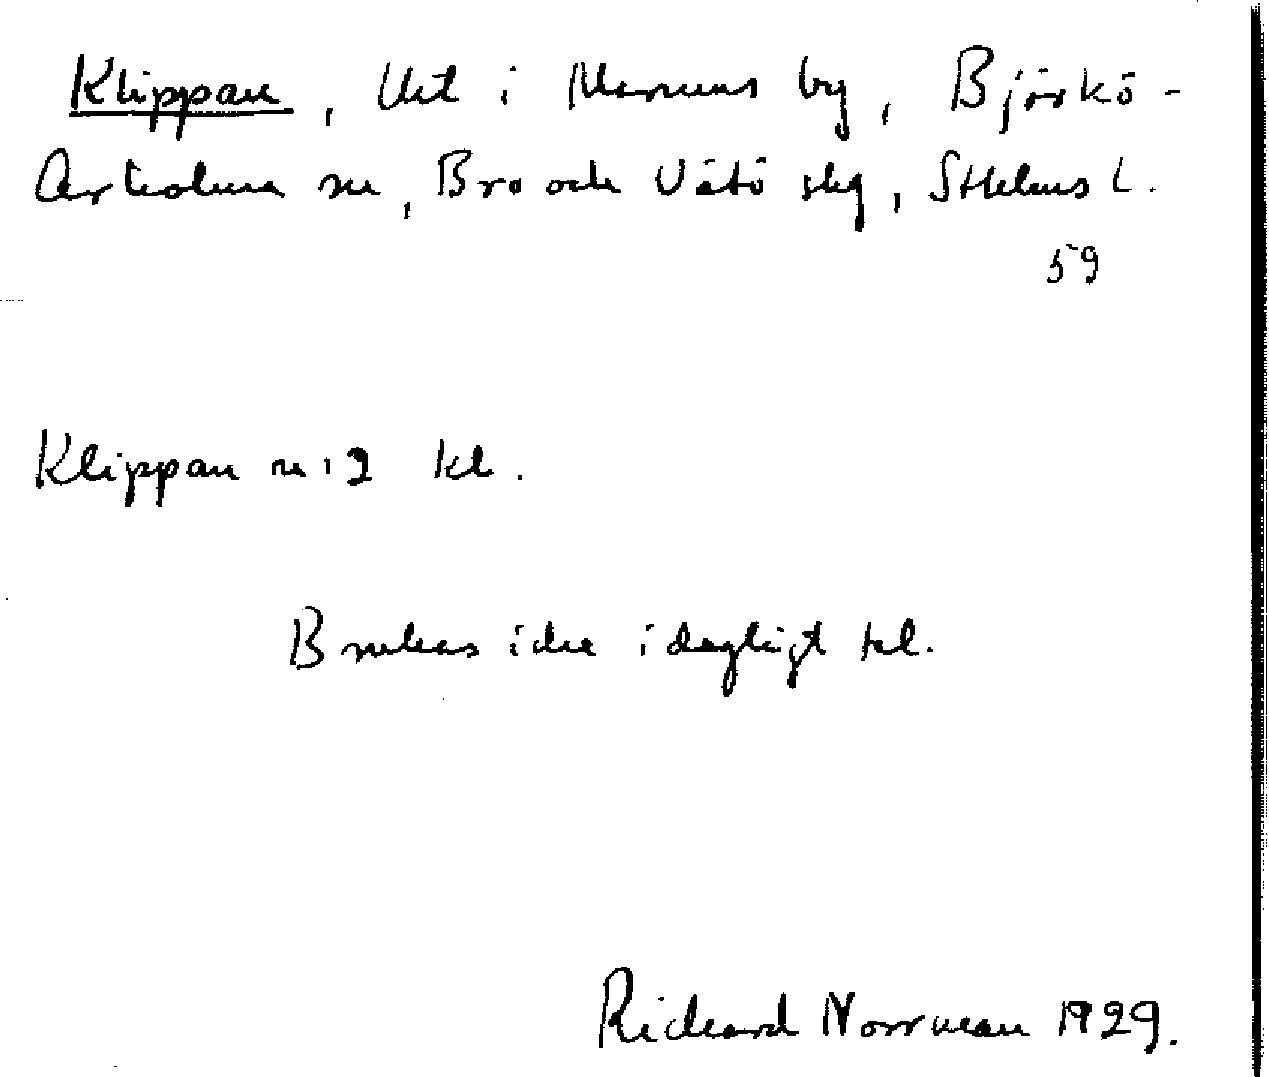 Klippan, Utt i Marums by, Björkö-
Arholma sn, Bro och Vätö skg, Sthlms L.
59
Klippan n:2 kl.
Brukas icke i dagligt tal.
Richard Norrman 1929.